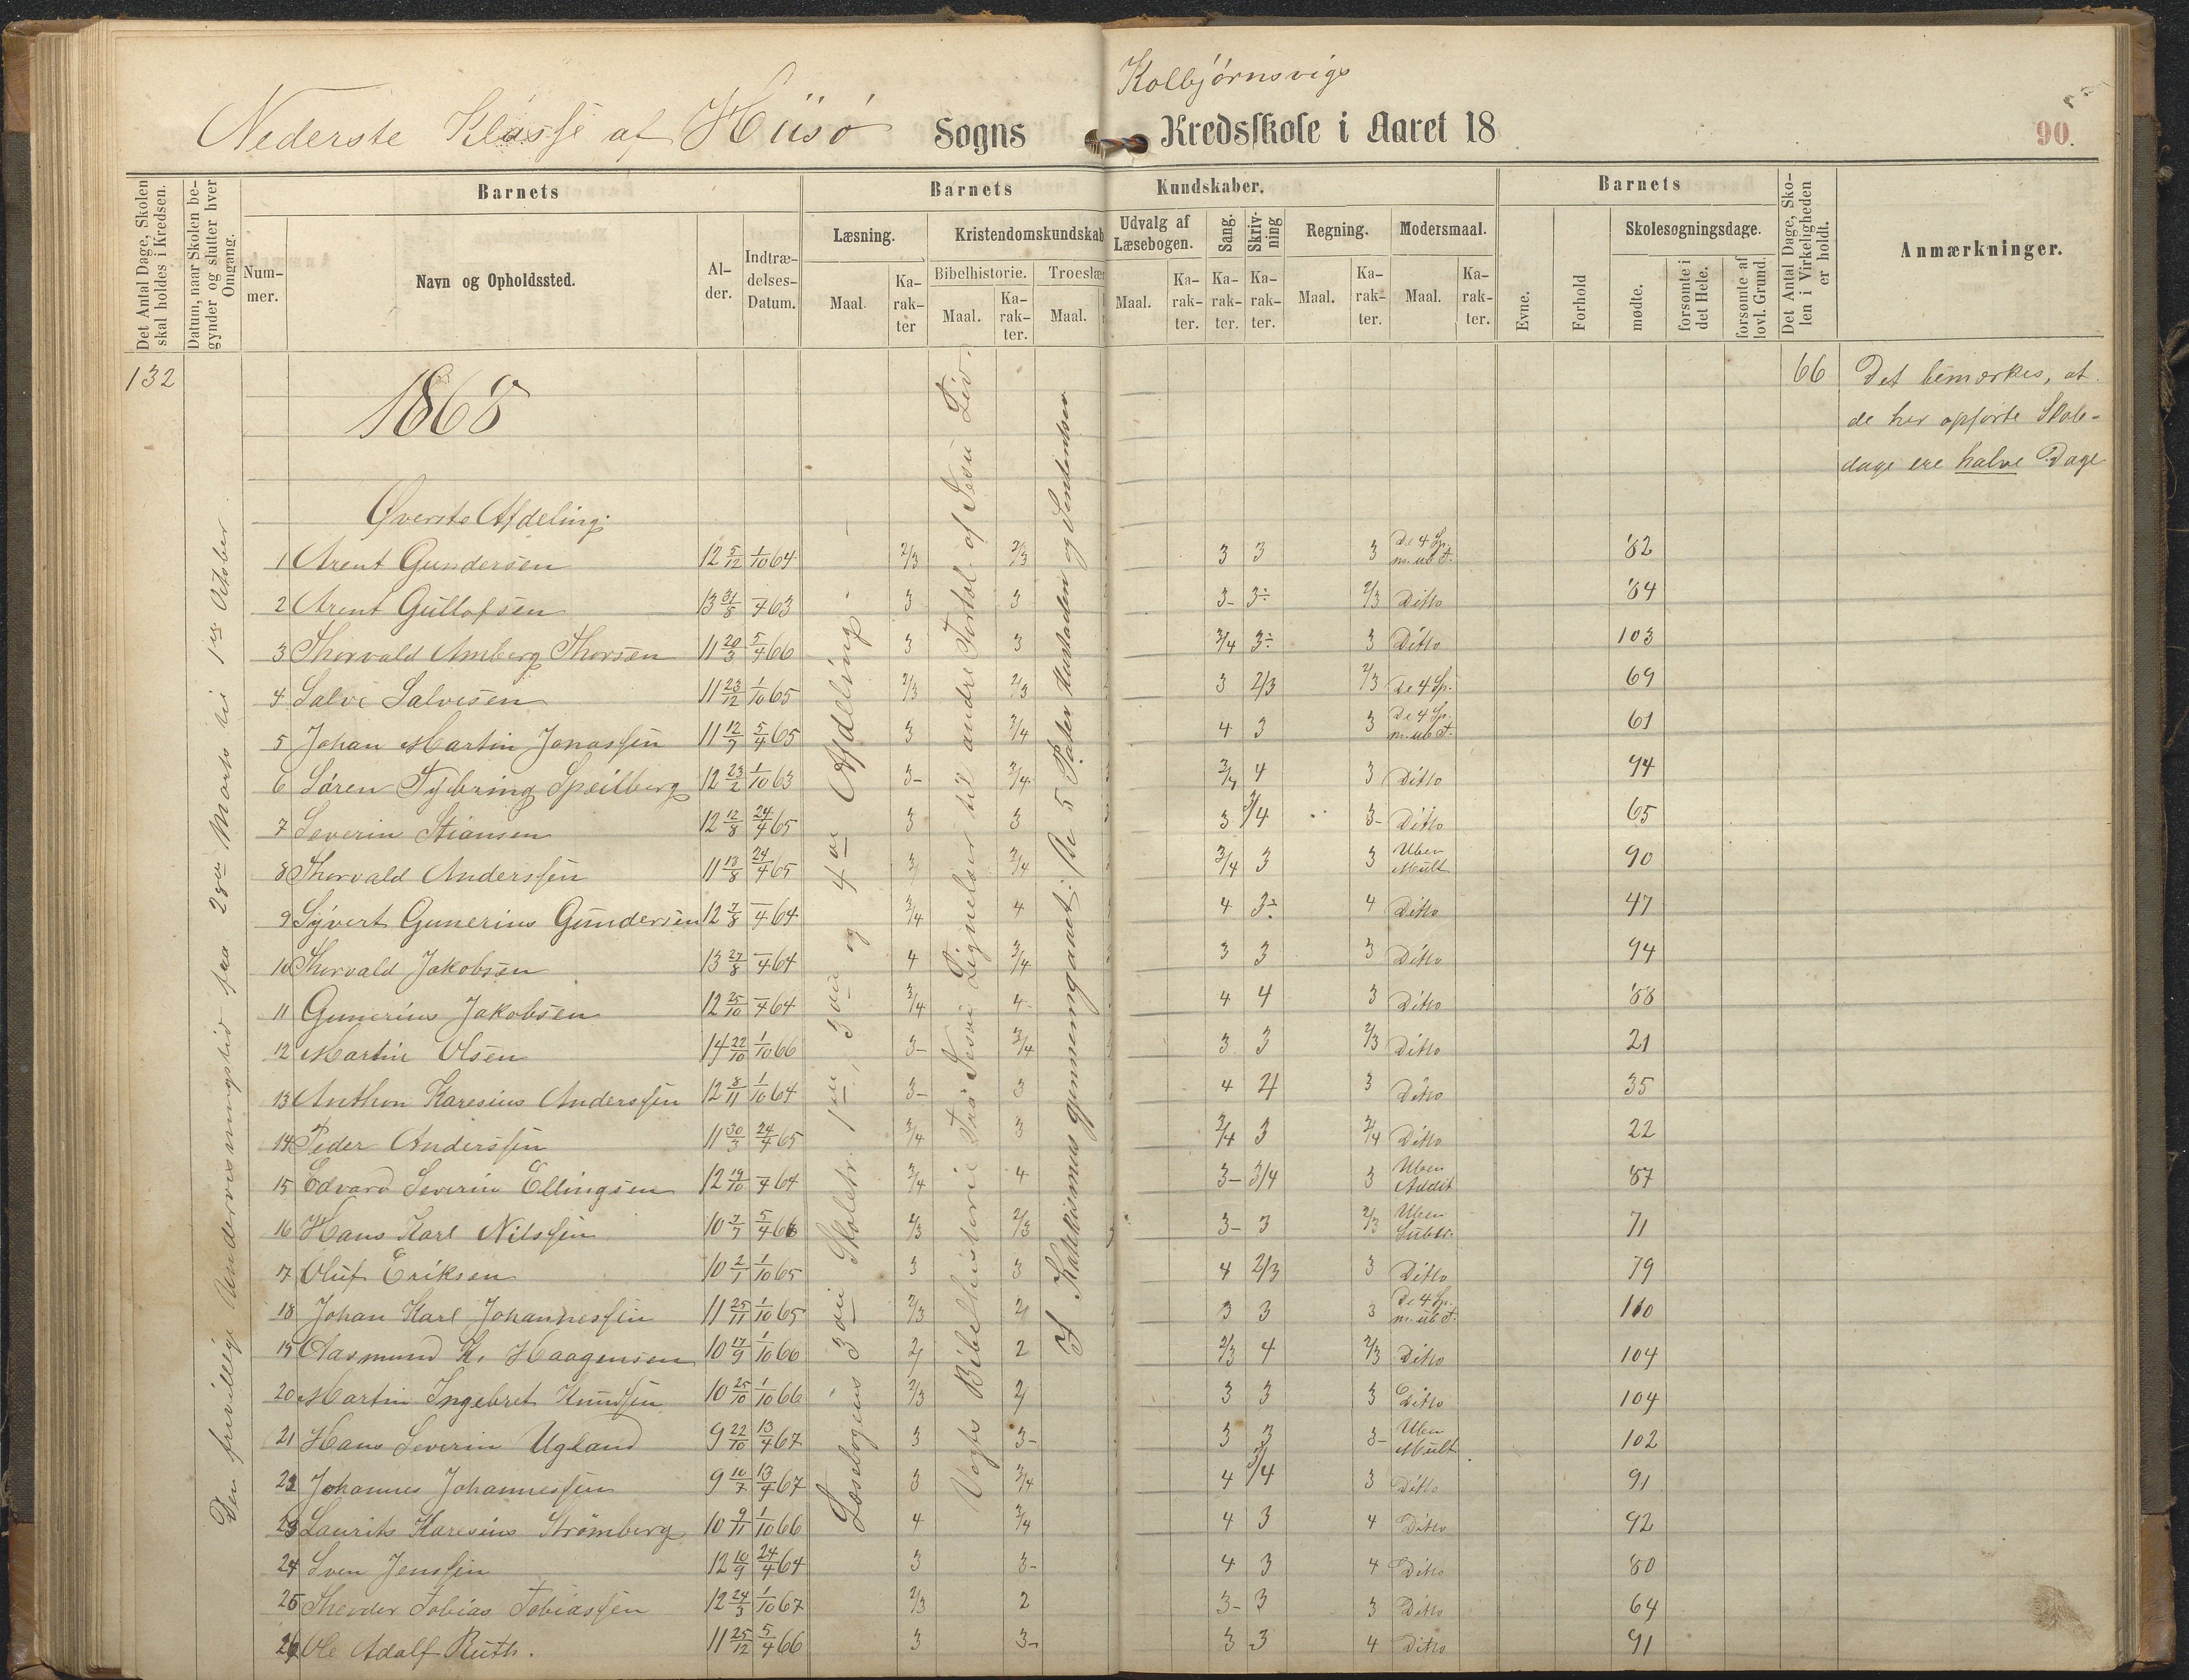 Kolbjørnsvigs
Nederste Klasse af Hiisø Sogns Kredsskole i Aaret 18
90.
Det Antal Dage, Skolen skal holdes i Kredsen.
Datum, naar Skolen begynder og slutter hver Omgang.
Barnets
Nummer.
Navn og Opholdssted.
Alder.
Indtrædelses-Datum.
Barnets Kundskaber.
Læsning.
Maal.
Karakter
Kristendomskundskab
Bibelhistorie.
Maal.
Karakter.
Troeslær
Maal.
Udvalg af Læsebogen.
Maal.
Karakter.
Sang.
Karakter.
Skrivning
Karakter.
Regning.
Maal.
Karakter.
Modersmaal.
Maal.
Karakter.
Barnets
Evne.
Forhold
Skolesøgningsdage.
mødte.
forsømte i det Hele.
forsømte af lovl. Grund.
Det Antal Dage, Skolen i Virkeligheden er holdt.
Anmærkninger.
132
1868
66
Det bemærkes, at
de her opførte Skole-
dage ere halve Dage
Den frivillige Undervisningstid fra 28de Marts til 1ste October
Læsebogens 3die Skoletr. 1ste, 3die og 4de Afdeling.
Vogts Bibelhistorie fra Jesu Lignelser til andre Fortæl. af Jesu Liv.
I Katekismus gjennemgaaet: De 5 Parter Husstaden og Sententser
Øverste Afdeling.
1 Arent Gundersen 12 5/12 1/10 64 2/3 2/3 3 3 3 De 4 Sp. m. ub T. 82
2 Arent Gullofsen 13 31/8 – 4 63 3 3 3- 3÷ 2/3 Ditto 84
3 Thorvald Amberg Thorsen 11 20/3 5/4 66 3 3 3/4 3÷ 3 Ditto 103
4 Salve Salvesen 11 23/12 1/10 65 2/3 2/3 3 2/3 2/3 De 4 Sp. 69
5 Johan Martin Jonassen 11 12/7 5/4 65 3 3/4 4 3 3 De 4 Sp. m. ub T. 61
6 Søren Tybring Speilberg 12 23/2 1/10 63 3- 3/4 3/4 4 3 Ditto 94
7 Severin Stiansen 12 12/8 24/4 65 3 3 3 3/4 3- Ditto 65
8 Thorvald Anderssen 11 13/8 24/4 65 3 3/4 3/4 3 3 Uben Mult 90
9 Syvert Gunerius Gundersen 12 7/8 – 4 64 3/4 4 4 3÷ 4 Ditto 47
10 Thorvald Jakobsen 13 27/8 – 4 64 4 3/4 3 3 3 Ditto 94
11 Gunerius Jakobsen 12 25/10 – 4 64 3/4 4- 4 4 3 Ditto 88
12 Martin Olsen 14 22/10 1/10 66 3- 3/4 3 3 2/3 Ditto 21
13 Anthon Karesius Anderssen 12 8/11 1/10 64 3- 3 4 4 3 Ditto 35
14 Peder Anderssen 11 30/3 24/4 65 3/4 3 3/4 3 3/4 Ditto 22
15 Edvard Severin Ellingsen 12 19/10 – 4 64 3/4 4 3- 3/4 3 Uben Addit 87
16 Hans Karl Nilssen 10 7/7 5/4 66 2/3 2/3 3- 3 2/3 Uben Subtr. 71
17 Oluf Eriksen 10 2/1 1/10 65 3 3 4 2/3 3 Ditto 79
18 Johan Karl Johannessen 11 25/11 1/10 65 2/3 2 3 3 3 De 4 Sp. m. ub T. 110
19 Aasmund K. Haagensen 10 17/9 1/10 66 2 2 2/3 4 2/3 Ditto 104
20 Martin Ingebret Knudsen 10 25/10 1/10 66 2/3 2 3 3 3 Ditto 104
21 Hans Severin Ugland 9 22/10 13/4 67 3 3- 3 3 3- Uben Mult 102
22 Johannes Johannessen 9 10/7 13/4 67 3 3/4 4 3/4 3 Ditto 91
23 Laurits Karesius Strømberg 10 9/11 1/10 66 4 3/4 4 3 4 Ditto 92
24 Sven Jenssen 12 10/9 24/4 64 3 3- 4 3 4 Ditto 80
25 Theoder Tobias Tobiassen 12 24/3 1/10 67 2/3 2 3- 3 3 Ditto 64
26 Ole Adolf Ruth. 11 25/12 5/4 66 3 3- 3 3 4 Ditto 91